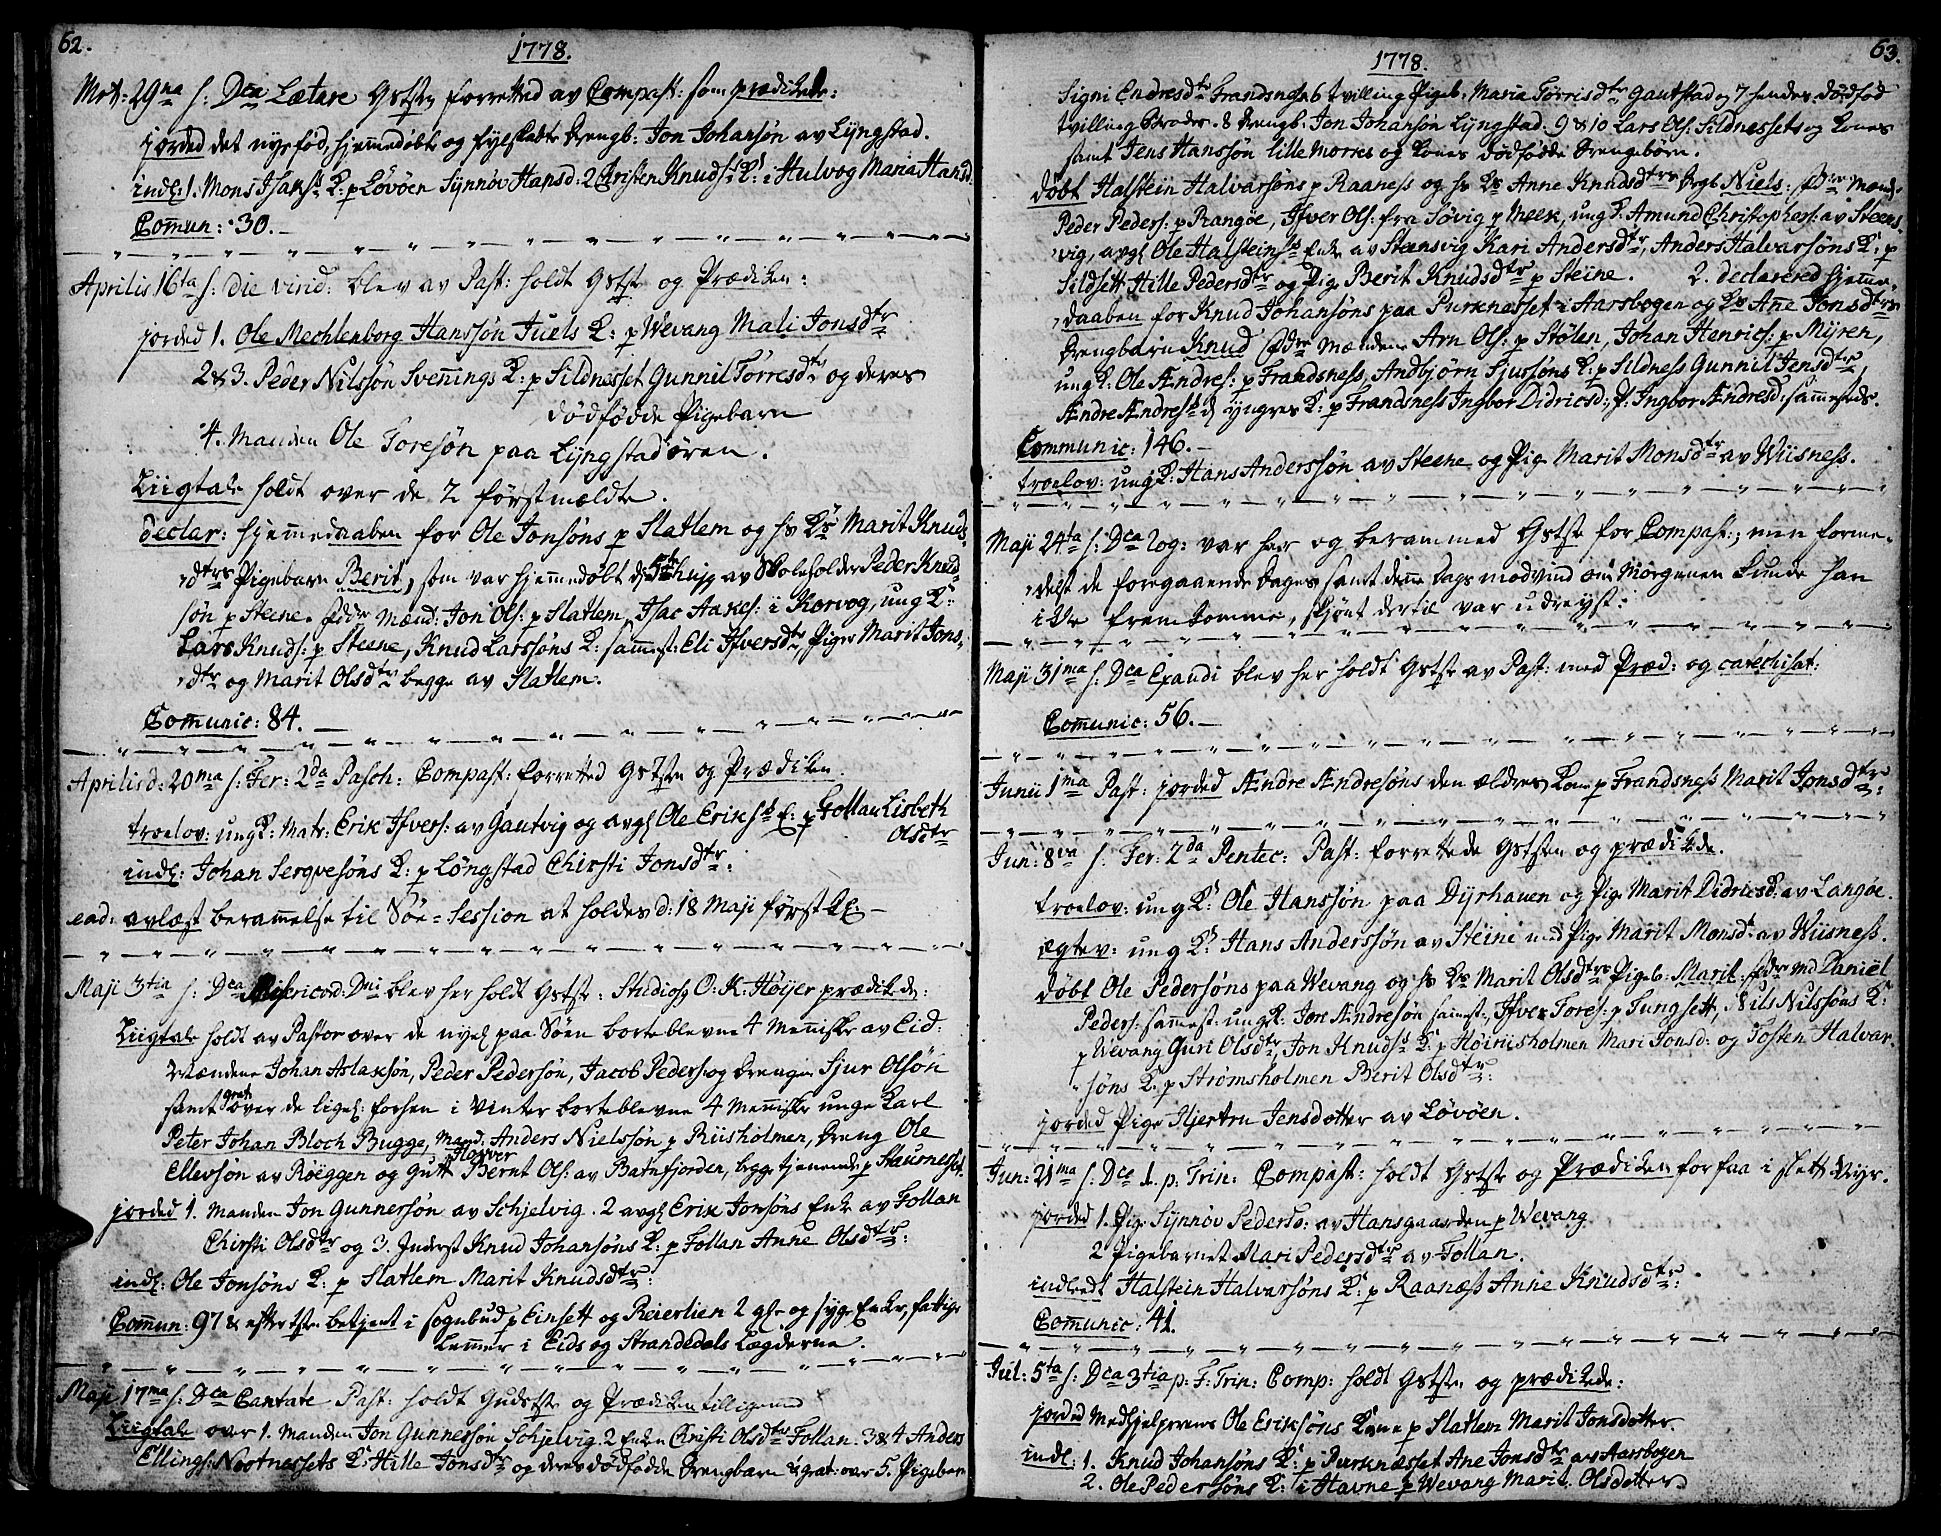 62.
1778.
Mrt: 29na s: Dca Lætare Gstste forretted av Compast: som prædikede:
jorded det nysfød, hjemmedøbte og Drengb: Jon Johansøn av Lyngstad.
indl: 1. Mons Isaks K: p Løvöen Synnøv Hansd: 2 Christen Knuds: K: i Hulvog Maria Hansd
Comun: 30.
Aprilis 16ta s: die virid: blev av Past: holdt Gstste og Prædiken:
jorded 1. Ole Mechlenborg Hanssøn Juels K: p Wevang Mali Jonsdtr
2 & 3. Peder Nilssøn Svenings K: p Sildnesset Gunnil Torresdtr og deres
dødfødde Pigebarn
4. Manden Ole Toresøn paa Lyngstadøren.
Liigtale holdt over de 2 førstmældte.
declar: hjemmedaaben for Ole Jonsøns p Slatlem og hs Ks Marit Knuds
dtrs Pigebarn Berit, som var hjemmedøbt av Skoleholder Peder Knud
søn p Steene. Fdr Mænd: Jon Ols: p Slatlem, Isac Aakes: i Korvog, ung K:
Lars Knuds: p Steene, Knud Larssøns K: sammest: Eli Ifversdtr, Piger Marit Jons
dtr og Marit Olsdtr begge av Slatlem.
Comunic: 84.
Aprilis d: 20ma s: Fer: 2da Pasch: Compast: forretted Gstste og Prædiken.
troelov: ung K: Matr: Erik Ifvers: av Gautvig og avgl Ole Eriks E: p Follan Lisbeth
Olsdtr
indl: Johan Serqvesøns K: p Løngstad Chirsti Jonsdtr:
ead: avlæst berammelse til Søe-Session at holdes d: 18 Maji førstk
Maji 3tia s: Dca Misericord: Dni blev her holdt Gstste: Studios O: K: Høyer prædikede:
Liigtale holdt av Pastor over de nyel paa Søen borteblevne 4 Mennisker av Eid:
Mændene Johan Aslaksøn, Peder Pedersøn, Jacob Peders: og Drengen Sjur Olsøn
samt grat over de ligel: forhen i Vinter borteblevne 4 Mennisker unge Karl
Peter Johan Bloch Bugge, Mand: Anders Nielssøn p Riisholmen, Dreng Ole
Ellevsøn av Røeggen og Gutt Havver Bernt Ols: av Batnfjorden, begge tjenende p Staurneset
jorded 1. Manden Jon Gunnersøn av Schjelvig. 2 avgl Erik Jonsøns Enke av Follan
Chirsti Olsdtr og 3. Inderst Knud Johansøns K: p Follan Anne Olsdtr:
indl: Ole Jonsøns K: p Slatlem Marit Knudsdtr:
Comun: 97 & efter tsten betjent i Sognebud p Einsett og Reierlien 2 gle og syge Enker, fattige
Lemmer i Eids og Strandedals Lægderne.
Maji 17ma s: Dca Cantate Past: holdt Gudstste og Prædiken tilligemed
Liigtale over 1. Manden Jon Gunnersøn Schjelvig. 2 Enken Christi Olsdtr Follan. 3 & 4 Anders
Ellings: Nootnessets K: Hille Jonsdtr og deres dødfødde Drengbarn & grat: over 5. Pigebarn
63.
1778.
Signi Endresdtr Frandsnes. 6 tvilling Pigeb: Maria Torrisdtr Gautstad og 7 hendes dødfød
tvilling Broder. 8 Drengb: Jon Johansøn Lyngstad. 9 & 10 Lars Ols: Sildnessets og Kones
samt Jens Hanssøn lille Morkes og Kones dødfødde Drengebørn.
døbt Halstein Halvarsøns p Raaness og hs Ks Anne Knudsdtrs Drgb Niels: Fdre Mænd:
Peder Peders: p Rangøe, Ifver Ols: fra Søvig p Meek, ung K: Amund Christophers: av Steens
vig, avgl Ole Halsteins Enke av Stensvig Kari Andersdtr, Anders Halvarsøns K: p
Sildsett Hille Pedersdtr og Pig. Berit Knudsdtr p Steine. 2. declarered hjemme
daaben for Knud Johansøns paa Purknesset i Aarsbogen og Ks Ane Jonsdtrs
Drengbarn Knud Fdre Mændene Arn Ols: p Stølen, Johan Henrics: p Myren,
ung K: Ole Ændres: p Frandsness, Andbjørn Sjussøns K: p Sildness Gunnil Jensdtr,
Ændre Ændres d yngres K: p Frandsness Ingbor Didricsd: P: Ingbor Ændresd: sammesteds.
Communic: 146.
troelov: ung K: Hans Anderssøn av Steene og Pig. Marit Monsdtr av Wiisness.
Maji 24ta s: Dca Rog: var her og berammed Gstste for Compast:, men forme
delst de foregaaende Dages samt denne Dags modvind om Morgenen kunde han
ikke fremkomme, skjønt dertil var udreyst:
Maji 31ma s: Dca Exaudi blev her holdt Gstste av Past: med Præd: og catechisat:
Comunic: 56.
Junii 1ma Past: jorded Ændre Ændresøns den ældres Kone p Frandsness Marit Jonsdtr:
Jun: 8va s: Fer: 2da Pentec: Past: forrettede Gstste og prædikede.
troelov: ung K: Ole Hanssøn paa Dyrhauen og Pige Marit Didricsd: av Langøe.
egtev: ung K: Hans Anderssøn av Steine med Pige Marit Monsd: av Wiisness.
døbt Ole Pedersøns paa Wevang og hs Ks Marit Olsdtrs Pigeb: Marit: Fdre Md Daniel
Peders: sammest: ung K: Tore Ændresøn samest: Ifver Tores: p Tungsett, Nils Nilssøns K:
p Wevang Guri Olsdtr, Jon Knuds K: p Høinisholmen Mari Jonsd: og Tosten Halvar
søns K: p Strømsholmen Berit Olsdtr:
jorded Pige Hjertru Jensdotter av Løvöen.
Jun: 21ma s: Dca 1. p: Trin: Compast: holdt Gstste og Prædiken for faa i slett Veyr.
jorded 1. Pige Synnøv Pedersd: av Hansgaarden p Wevang
2 Pigebarnet Mari Pedersdtr av Follan.
indledt Halstein Halvarsøns K: p Raaness Anne Knudsdtr:
Comunic: 41.
Jul: 5ta s: Dca 3tia p: F: Trin: Comp: holdt Gstste og prædikede:
jorded Medhjelperens Ole Eriksøns Kone p Slatlem Marit Jonsdotter.
indl: 1. Knud Johansøns K: p Purknesset Ane Jonsdtr av Aarsbogen
2. Ole Pedersøns K: i Havne p Wevang Marit Olsdotter